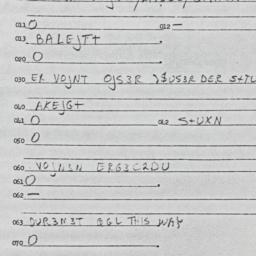 011 O 012 —
013 BALEJT+
020 O
030 EK VOJNT OJS3R DER
040 AKEJG+
041 O 042 S+UXN
050 O
060 VOJN3N ER63C2DU
061 O
062 —
063 DUR3N3T BGL THIS WAY
070 O